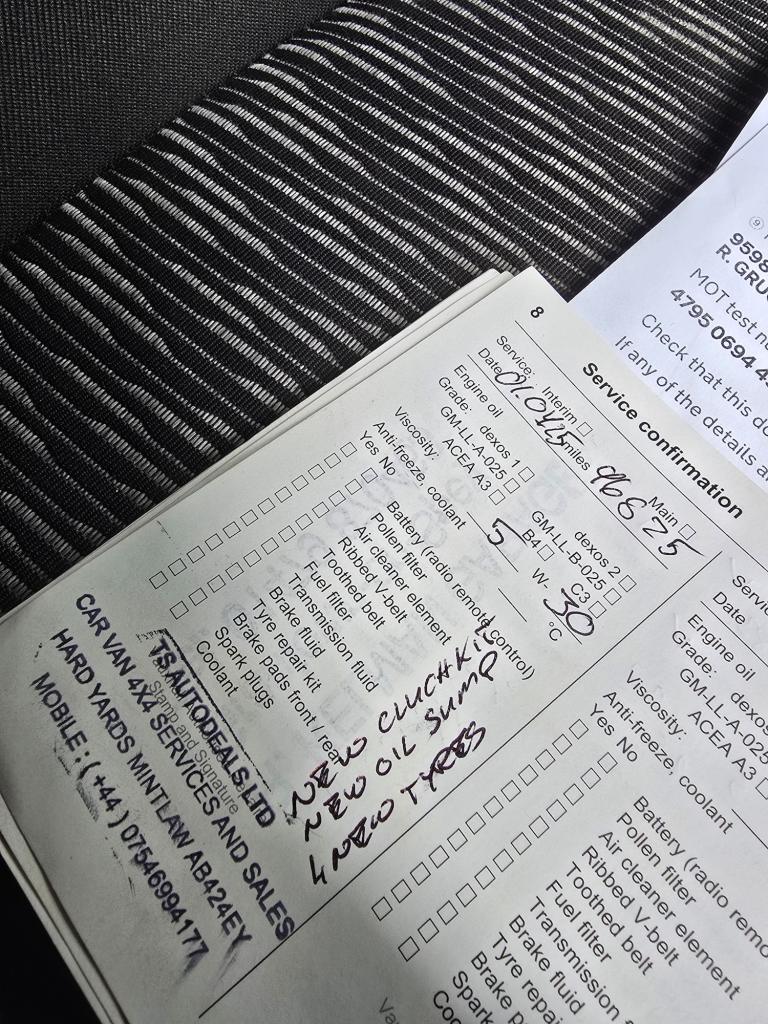 8
Service confirmation
Service: Interim □ Main □
Date miles 96875
Engine oil
Grade: dexos 1 □ dexos 2 □
GM-LL-A-025 □ GM-LL-B-025 □
ACEA A3 □ B4 □ C3 □
Viscosity: 5 W- 30
Anti-freeze, coolant °C
Yes No
□ □ Battery (radio remote control)
□ □ Pollen filter
□ □ Air cleaner element
□ □ Ribbed V-belt
□ □ Toothed belt
□ □ Fuel filter
□ □ Transmission fluid
□ □ Brake fluid
□ □ Tyre repair kit
□ □ Brake pads front / rear
□ □ Spark plugs
□ □ Coolant
NEW CLUCHKIT
NEW OIL SUMP
4 NEW TYRES
Stamp and Signature
TS AUTODEALS LTD
CAR VAN 4X4 SERVICES AND SALES
HARD YARDS MINTLAW AB424EY
MOBILE : ( +44 ) 07546994177
Servic
Date
Engine oil
Grade: dexos
GM-LL-A-025
ACEA A3
Viscosity:
Anti-freeze, coolant
Yes No
Battery (radio remo
Pollen filter
Air cleaner element
Ribbed V-belt
Toothed belt
Fuel filter
Transmission
Brake fluid
Tyre repai
Brake p
Spark
Coo
9
9598
R. GRU
MOT test nu
4795 0694 4
Check that this do
If any of the details a